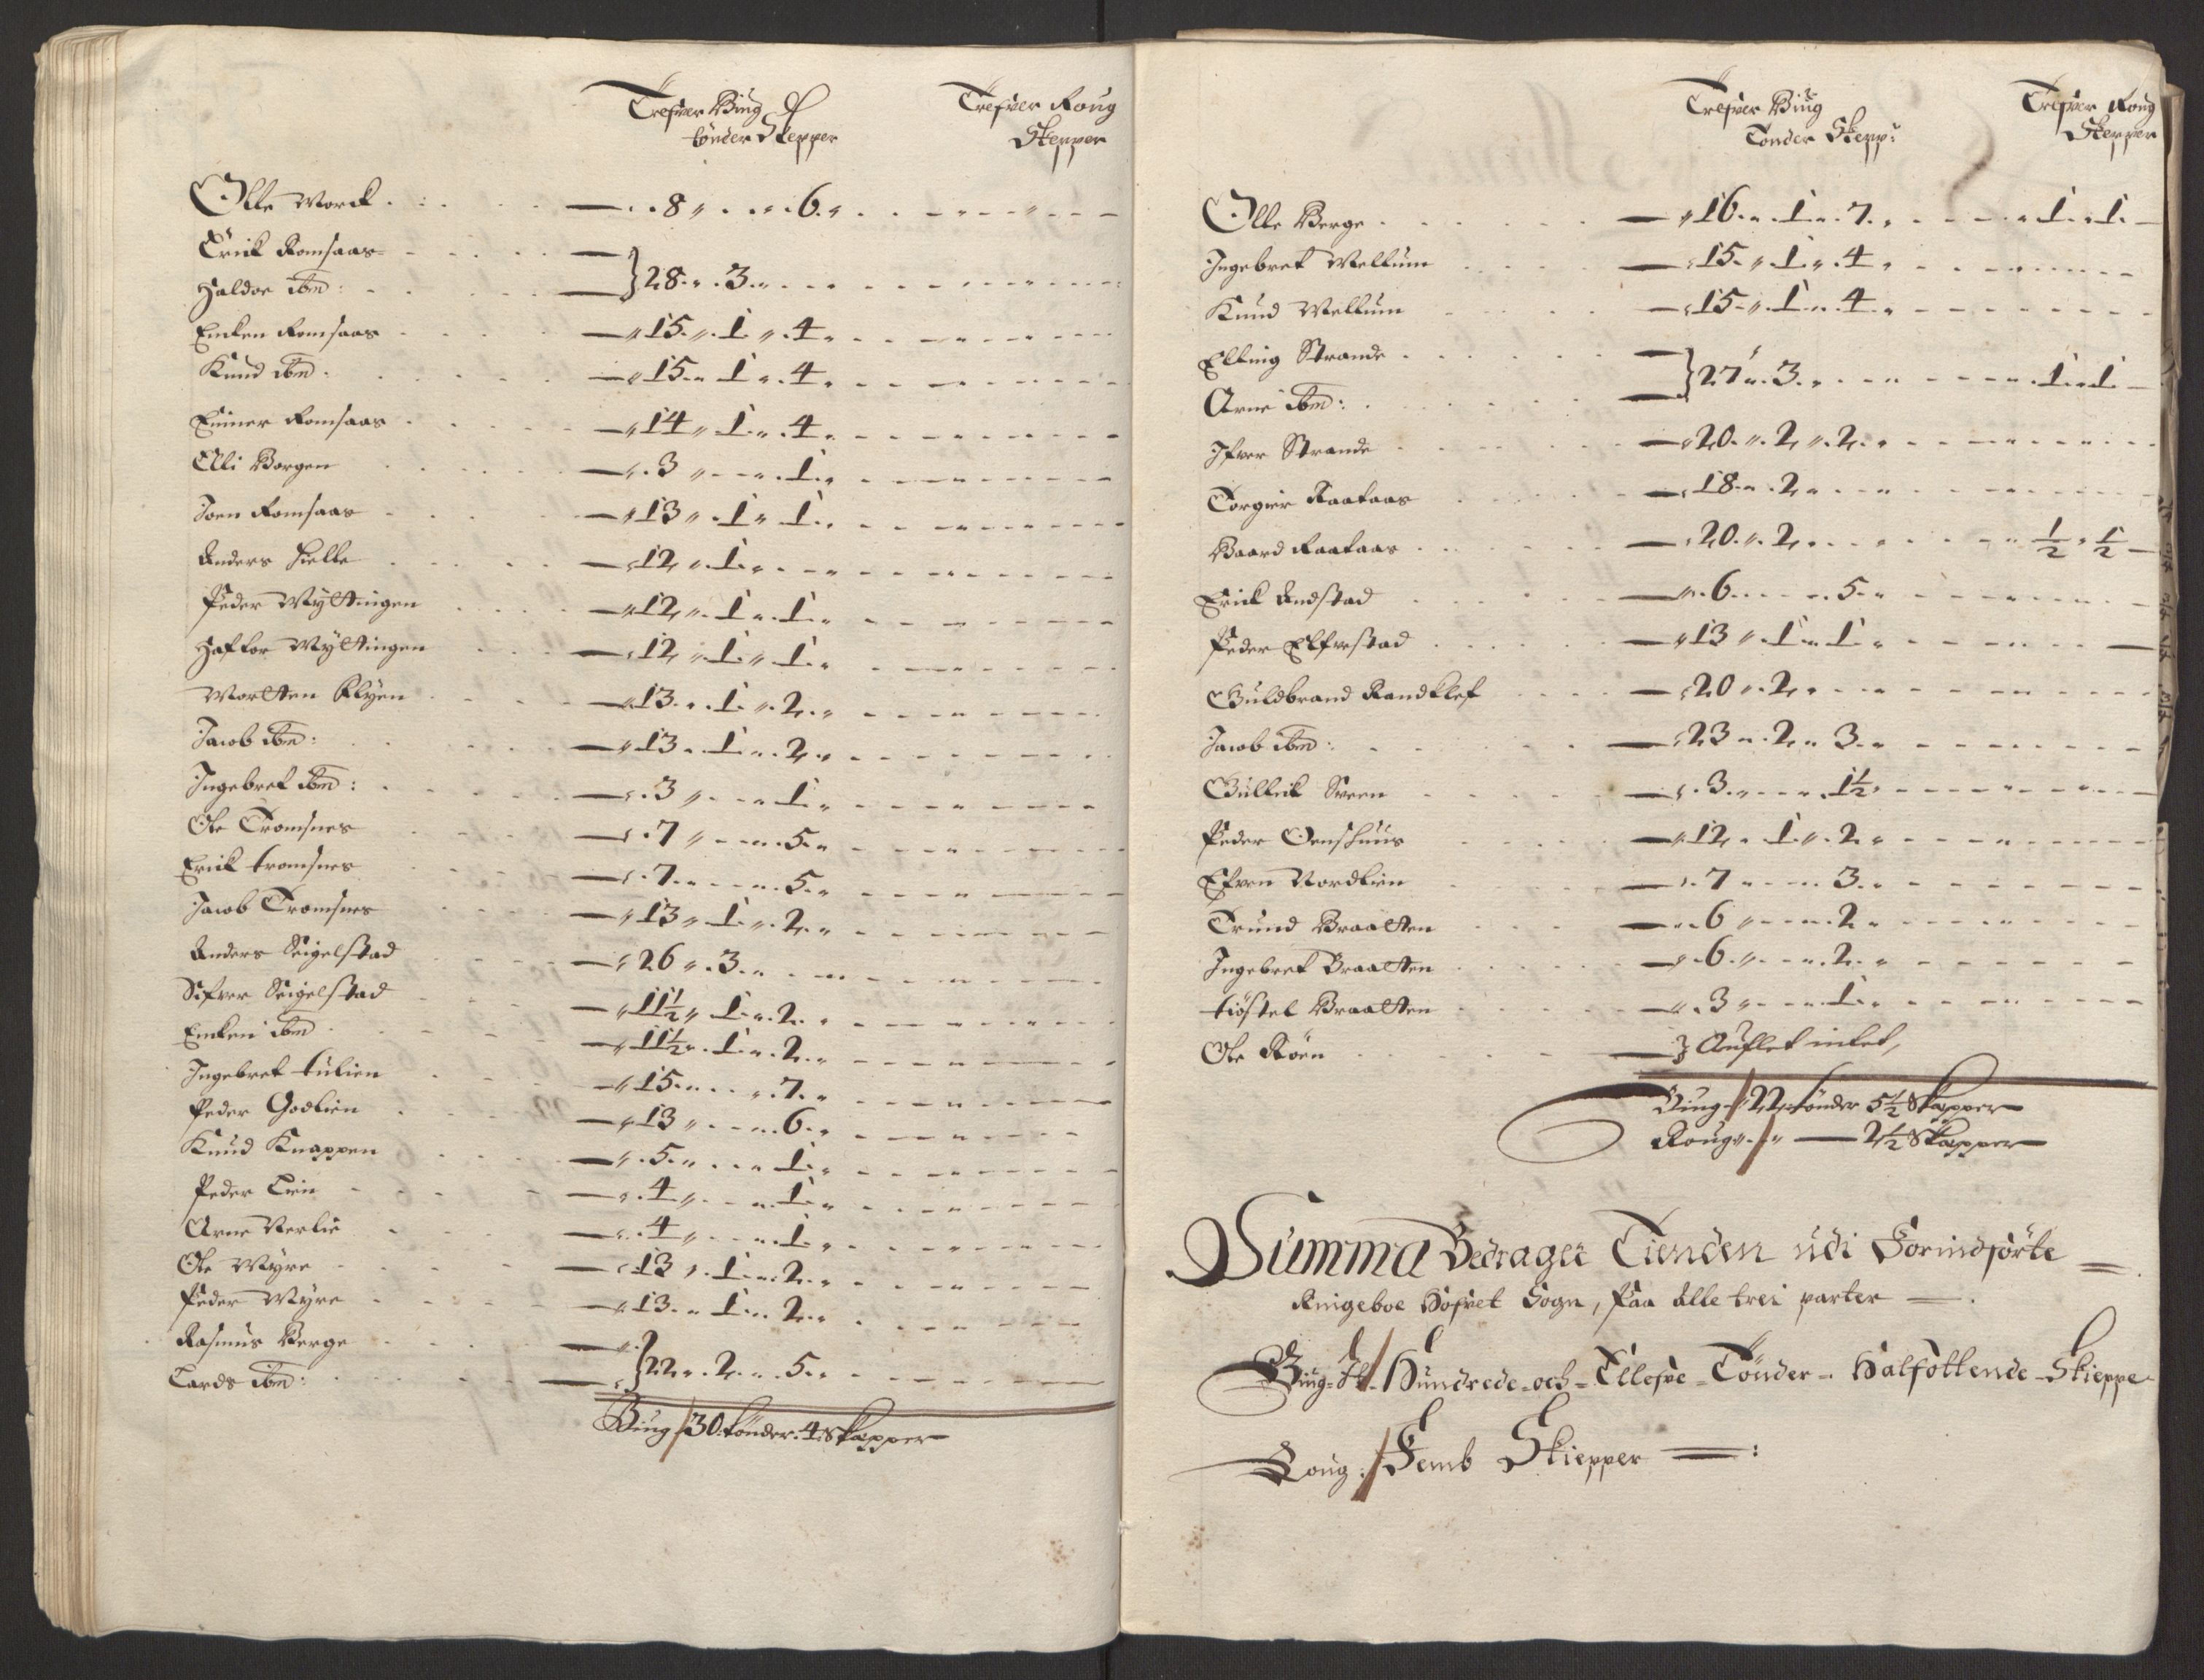 Trefver Biug
tönder Skepper
Trefver Roug
Skepper
Olle Morck 8 6
Erick Romsaas
Haldor ibm: } 28 3
Emken Romsaas 15 1 4
Knud ibm: 15 1 4
Einer Romsaas 14 1 4
Alj Borgen 3 1
Joen Romsaas 13 1 1
Anders Hielle 12 1
Peder Myttingen 12 1 1
Haftor Myttingen 12 1 1
Mortten Klyen 13 1 2
Jacob ibm: 13 1 2
Ingebret ibm: 3 1
Ole Tromsnes 7 5
Erick tromsnes 7 5
Jacob Tromsnes 13 1 2
Anders Seigelstad 26 3
Sifver Seigelstad 11½ 1 2
Emken ibm 11½ 1 2
Ingebret tulien 15 7
Peder Godlien 13 6
Knud Knappen 5 1
Peder Lien 4 1
Arne Nerlie 4 1
Ole Myre 13 1 2
Peder Myre 13 1 2
Rasmus Berge
Lards ibm: } 22 2 5
Biug 30 tönder 4 Skepper
Trefver Biug
Tönder Skepp:
Trefver Roug
Skepper
Olle Berge 16 1 7 1 1
Ingebret Mellum 15 1 4
Knud Mellum 15 1 4
Elling Strande
Arne ibm: } 27 3 1 1
Ifver Strande 20 2 2
Torgier Raaaas 18 2
Baard Raaaas 20 2 ½ ½
Erick Andstad 6 5
Peder Elfvestad 13 1 1
Guldbrand Randklef 20 2
Jacob ibm: 23 2 3
Gullik Sveen 3 1½
Peder Oenshuus 12 1 2
Efven Nordlien 7 3
Trund Braatten 6 2
Ingebret Braatten 6 2
tiøstel Braatten 3 1
Ole Röen } Auflet intet,
Biug 22 tönder 5½ Skepper
Roug 2½ Skepper
Summa Bedrager Tienden udi Forindførte
Ringeboe Hofvet Sogn, Paa alle trei parter
Biug Hundrede och Ellefve Tönder Halfottende Skieppe
Roug Femb Skiepper